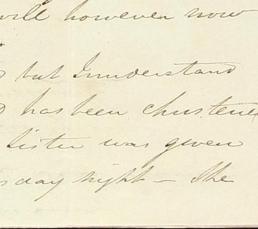 will however now
but Innderstand
has been christene
sister was given
day night - She